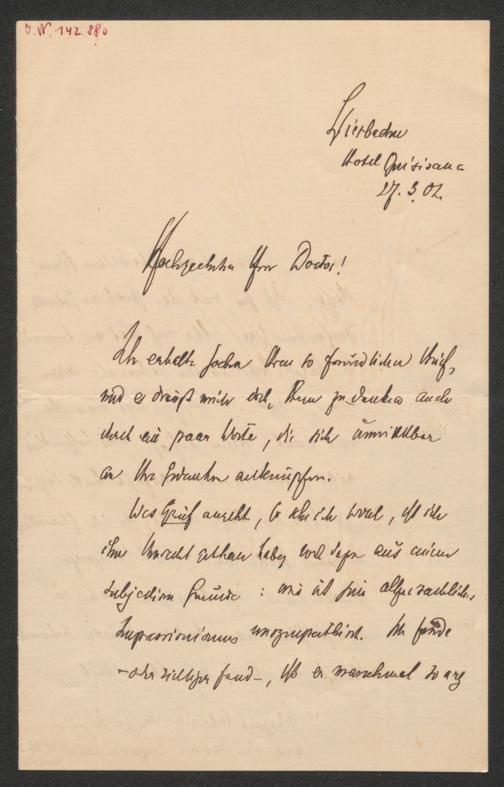 J. N. 142.880
Wiesbaden
Hotel Quisisana
27. 3. 02
Hochgeehrter Herr Doctor!
Ich erhalte soeben Ihren so freundlichen Brief,
und es drängt mich doch, Ihnen zu danken auch
durch ein paar Worte, die sich unmittelbar
an Ihre Gedanken anknüpfen.
Was Greif angeht, so sehe ich wohl, daß ich
ihm Unrecht gethan habe, und das aus einem
subjectiven Grunde: mir ist sein
Impressionismus unsympathisch. Ich finde
– oder richtiger fand –, daß er manchmal so arg